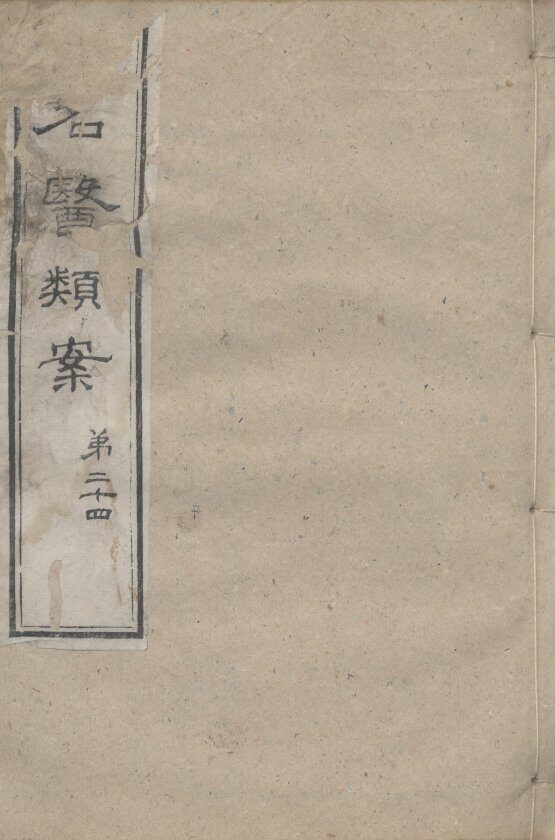 名醫類案
弟二十四